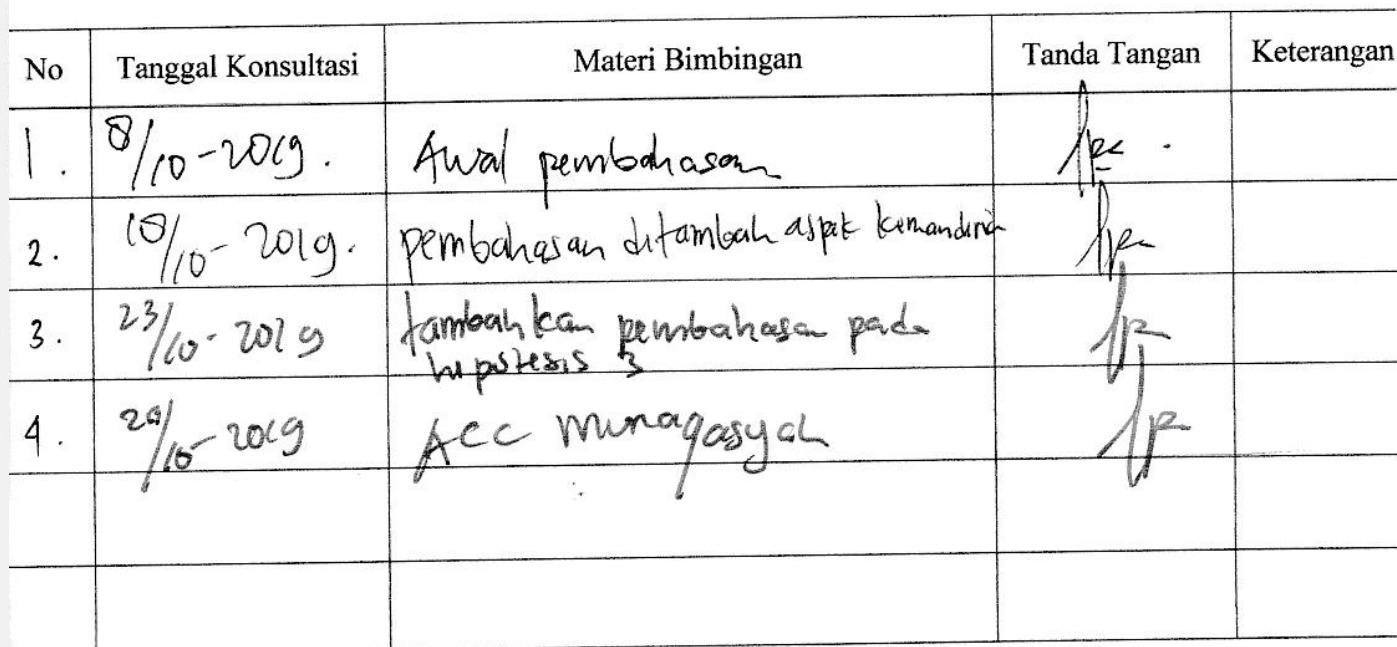 No Tanggal Konsultasi Materi Bimbingan Tanda Tangan Keterangan
1. 8/10-2019. Awal pembahasan
2. 18/10-2019. pembahasan ditambah aspek kemandiria
3. 23/10-2019 tambahkan pembahasa pada
hipotesis 3
4. /10-2019 Acc munaqasyah